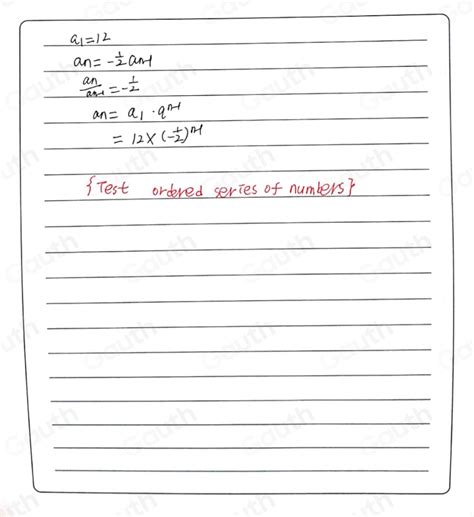 a₁=12
aₙ=-½aₙ₋₁
aₙ/aₙ₋₁=-½
aₙ= a₁ · qⁿ⁻¹
= 12×(-½)ⁿ⁻¹
{Test ordered series of numbers}
Gauth